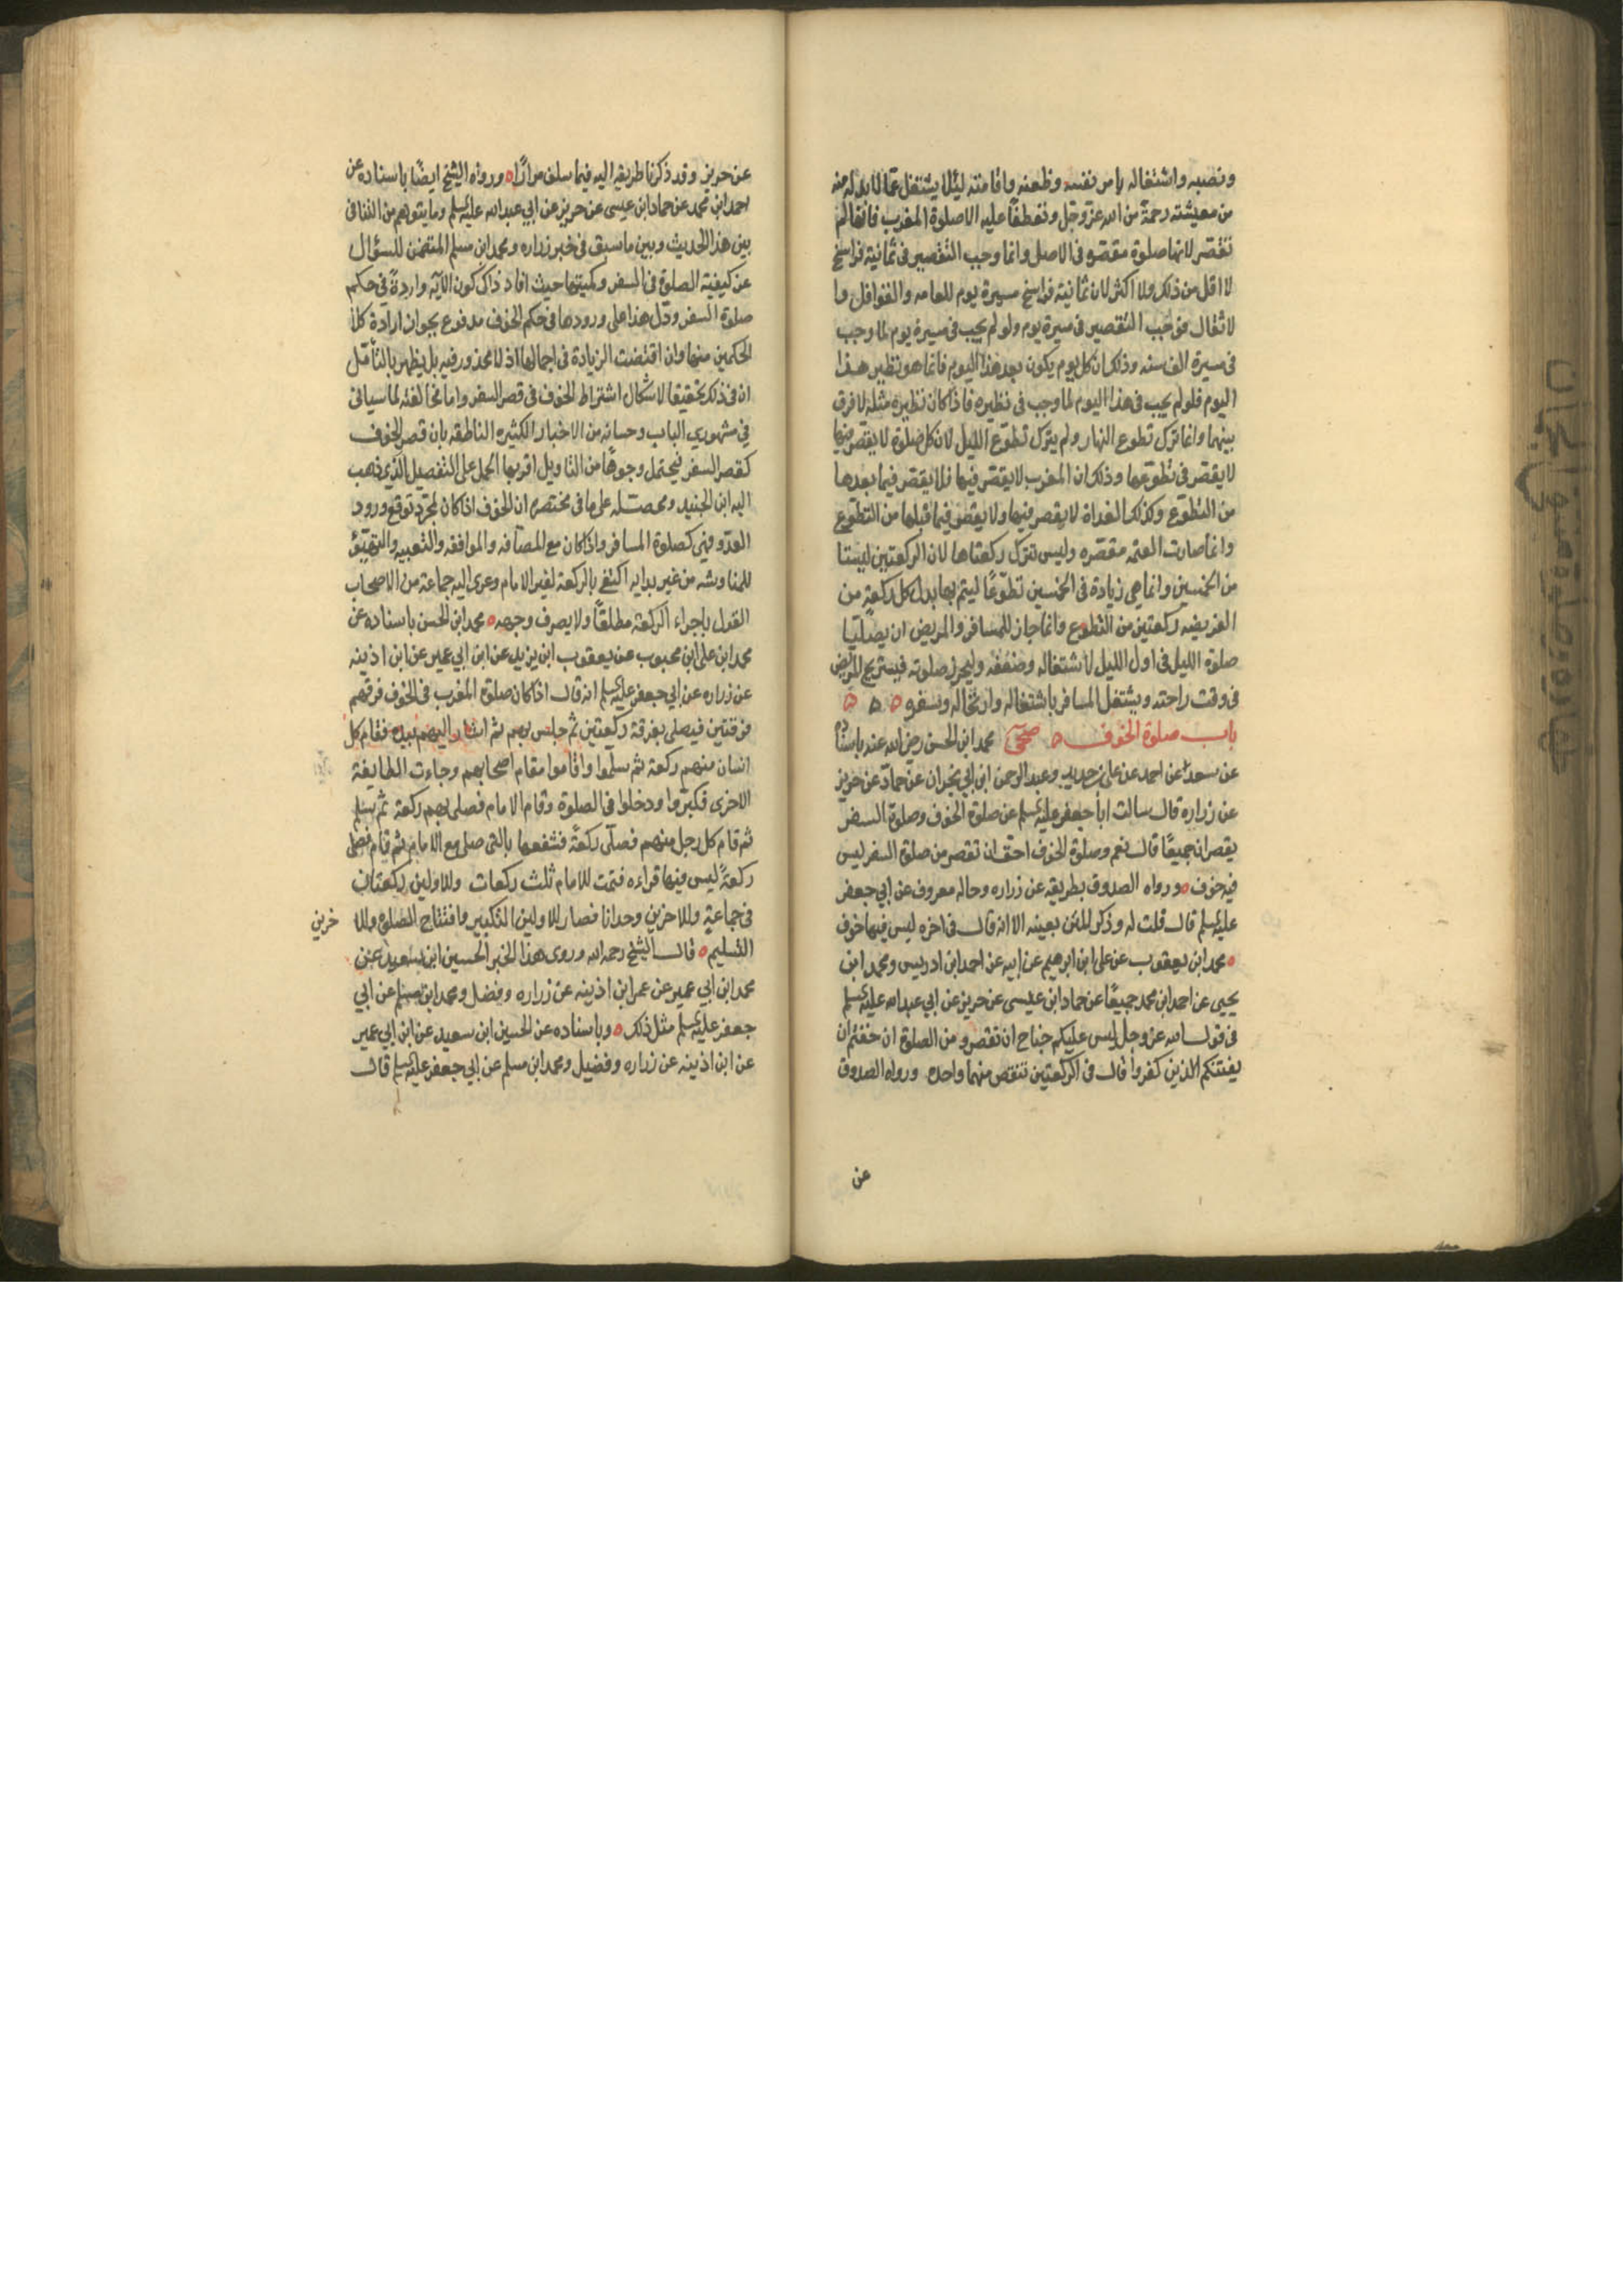 ونصبه واشتغاله بامر نفسه وظعنه واقامته ليئلا يشتغل عمّا لا بد له منه
من معيشته رحمةً من الله عزّوجّل وتعطّفًا عليه الا صلوة المغرب فانها لم
تقصّر لانها صلوة مقصّره فى الاصل وانما وجب التقصير فى ثمانية فراسخ
لا اقل من ذلك ولا اكثر لان ثمانية فراسخ مسيرة يوم للعامه والقوافل وا
لاثقال فوجب التقصير فى مسيرة يوم ولو لم يجب فى مسيرة يوم لما وجب
فى مسيرة الف سنه وذلك ان كل يوم يكون بعد هذا اليوم فانما هو نظير هذا
اليوم فلو لم يجب فى هذا اليوم لما وجب فى نظيره فاذا كان نظيره مثله لا فرق
بينهما وانما ترك تطوع النهار ولم يترك تطوّع الليل لان كل صلوة لا يقصر فيها
لا يقصّر فى تطوّعها وذلك ان المغرب لا يقصّر فيها فلا يقصّر فيما بعدها
من التطوّع وكذلك الغداة لا يقصر فيها ولا يقصر فيما قبلها من التطوّع
وانما صارت العتمه مقصّره وليس تترك ركعتاها لان الركعتين ليستا
من الخمسين وانما هى زيادة فى الخمسين تطوّعًا ليتم بها بدل كل ركعةٍ من
الفريضه ركعتين من التطوع وانما جاز للمسافر والمريض ان يصلّيا
صلوة الليل فى اول الليل لاشتغاله وضعفه وليحرز صلوته فيستريح المريض
فى وقت راحته ويشتغل المسافر باشتغاله وارتحاله وسفره ه ه ه
باب صلوة الخوف ه صحى محمد ابن الحسن رضى الله عنه باسناده
عن سعد عن احمد عن على بن حديد وعبد الرحمن ابن ابي نجران عن حمّاد عن حريز
عن زراره قال سالت ابا جعفر عليه السلم عن صلوة الخوف وصلوة السفر
يقصران جميعًا قال نعم وصلوة الخوف احق ان تقصر من صلوة السفر ليس
فيه خوف ه ورواه الصدوق بطريقه عن زراره وحاله معروف عن ابي جعفر
عليه السلم قال قلت له وذكر المتن بعينه الا انه قال فى اخره ليس فيها خوف
ه محمد ابن يعقوب عن على ابن ابرهيم عن ابيه عن احمد ابن ادريس ومحمد ابن
يحيى عن احمد ابن محمد جميعًا عن حماد ابن عيسى عن حريز عن ابي عبد الله عليه السلم
فى قول الله عز وجل ليس عليكم جناح ان تقصرو من الصلوة ان خفتم ان
يفتنكم الذين كفروا قال فى الركعتين تنقص منهما واحده ورواه الصدوق
عن
عن حريز وقد ذكرنا طريقه اليه فيما سلف مرارًا ه ورواه الشيخ ايضًا باسناده عن
احمد ابن محمد عن حماد ابن عيسى عن حريز عن ابي عبد الله عليه السلم وما يتوهم من التنافى
بين هذا الحديث وبين ما سبق فى خبر زراره ومحمد ابن مسلم المتضمن للسؤال
عن كيفية الصلوة فى السفر وكميتها حيث افاد ذاك كون الآيه واردةً فى حكم
صلوة السفر ودّل هذا على ورودها فى حكم الخوف مدفوع بجواز ارادة كلا
الحكمين منها وان اقتضت الزيادة فى اجمالها اذ لا محذور فيه بل يظهر بالتأمّل
ان فى ذلك تحقيقا لاشكال اشتراط الخوف فى قصر السفر واما مخالفته لما سياتى
في مشهوري الباب وحسانه من الاخبار الكثيره الناطقه بان قصر الخوف
كقصر السفر فيحتمل وجوهًا من التاويل اقربها الحمل على التفصيل الذى ذهب
اليه ابن الجنيد ومحصّله على ما فى مختصره ان الخوف اذا كان لمجرّد توقع ورود
العدّو فهى كصلوة المسافر واذا كان مع المصآفه والموافقه والتعبيه والتهيّئ
للمناوشه من غير بدايه اكتفى بالركعة لغير الامام وعزى اليه جماعة من الاصحاب
القول باجراء الركعة مطلقًا ولا يصرف وجهه ه محمد ابن الحسن باسناده عن
محمد ابن على ابن محبوب عن يعقوب ابن يزيد عن ابن ابي عمير عن ابن اذينه
عن زراره عن ابي جعفر عليه السلم انه قال اذا كان صلوة المغرب فى الخوف فرقهم
فرقتين فيصلى بفرقة ركعتين ثم جلس بهم ثم اشار اليهم بيده فقام كل
انسان منهم ركعة ثم سلّموا واقاموا مقام اصحابهم وجاءت الطايفة
الاخرى فكبّروا ودخلوا فى الصلوة وقام الامام فصلى بهم ركعة ثم سلم
ثم قام كل رجل منهم فصلّى ركعةً فشفعها بالتى صلى مع الامام ثم قام فصلى
ركعةً ليس فيها قراءه فتمت للامام ثلث ركعات وللاولين ركعتان
فى جماعةٍ وللاخرين وحدانا فصار للاولين التكبير وافتتاح الصلوة وللا خرين
التسليم ه قال الشيخ رحمه الله وروى هذا الخبر الحسين ابن سعيد عن
محمد ابن ابي عمير عن عمر ابن اذينه عن زراره وفضل ومحمد ابن مسلم عن ابي
جعفر عليه السلم مثل ذلك ه وباسناده عن الحسين ابن سعيد عن ابن ابي عمير
عن ابن اذينه عن زراره وفضيل ومحمد ابن مسلم عن ابي جعفر عليه السلم قال